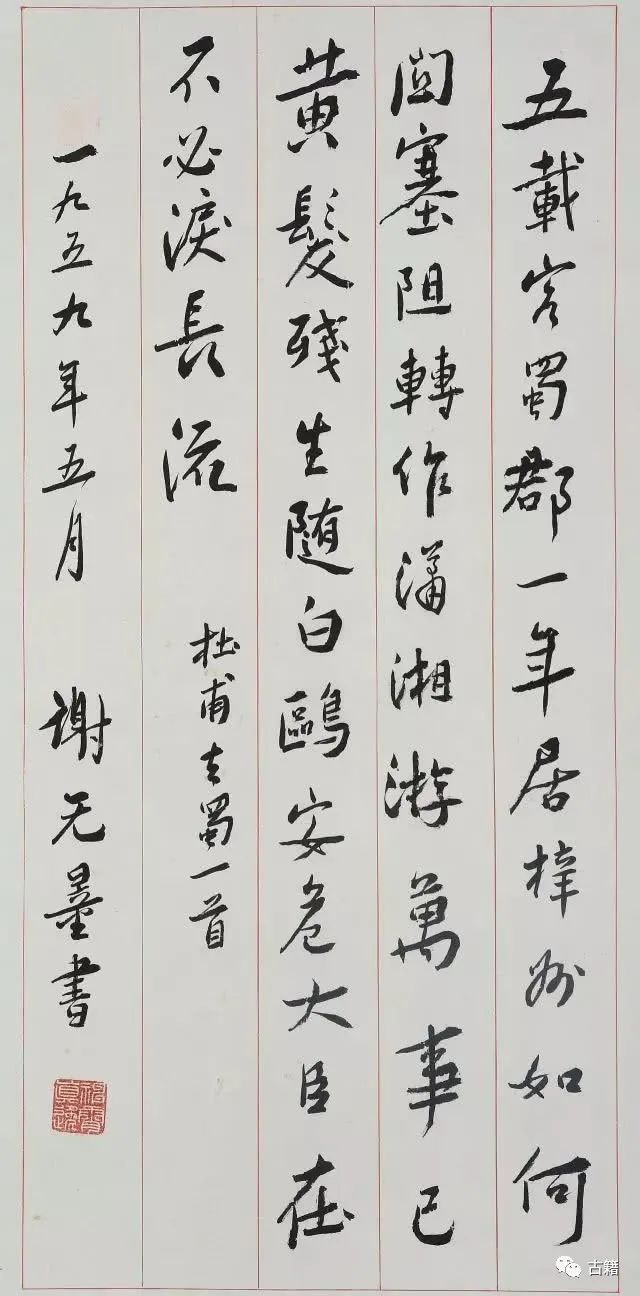 五載客蜀郡一年居梓州如何
関塞阻轉作瀟湘游萬事已
黄髮殘生随白鷗安危大臣在
不必淚長流
杜甫去蜀一首
一九五九年五月 謝无量書
古籍